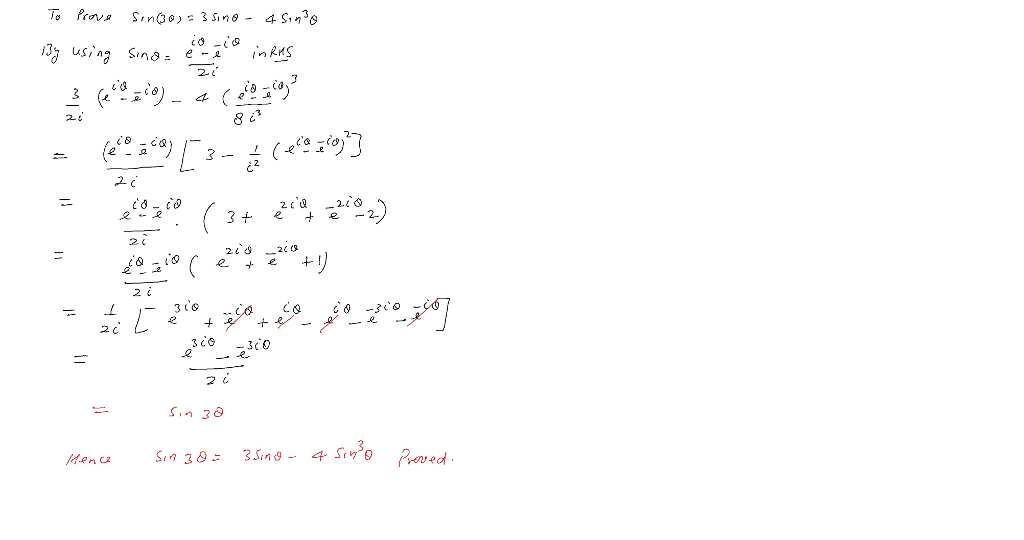 To Prove Sin(3θ) = 3 sinθ - 4 Sin³θ
By using Sinθ = (e^{iθ} - e^{-iθ})/2i in RHS
3/2i (e^{iθ} - e^{-iθ}) - 4 (e^{iθ} - e^{-iθ})³/8i³
= (e^{iθ} - e^{-iθ})/2i [3 - 1/i² (e^{iθ} - e^{-iθ})²]
= (e^{iθ} - e^{-iθ})/2i · (3 + e^{2iθ} + e^{-2iθ} - 2)
= (e^{iθ} - e^{-iθ})/2i (e^{2iθ} + e^{-2iθ} + 1)
= 1/2i [e^{3iθ} + e^{-iθ} + e^{iθ} - e^{iθ} - e^{-3iθ} - e^{-iθ}]
= (e^{3iθ} - e^{-3iθ})/2i
= Sin 3θ
Hence Sin 3θ = 3 Sinθ - 4 Sin³θ Proved.